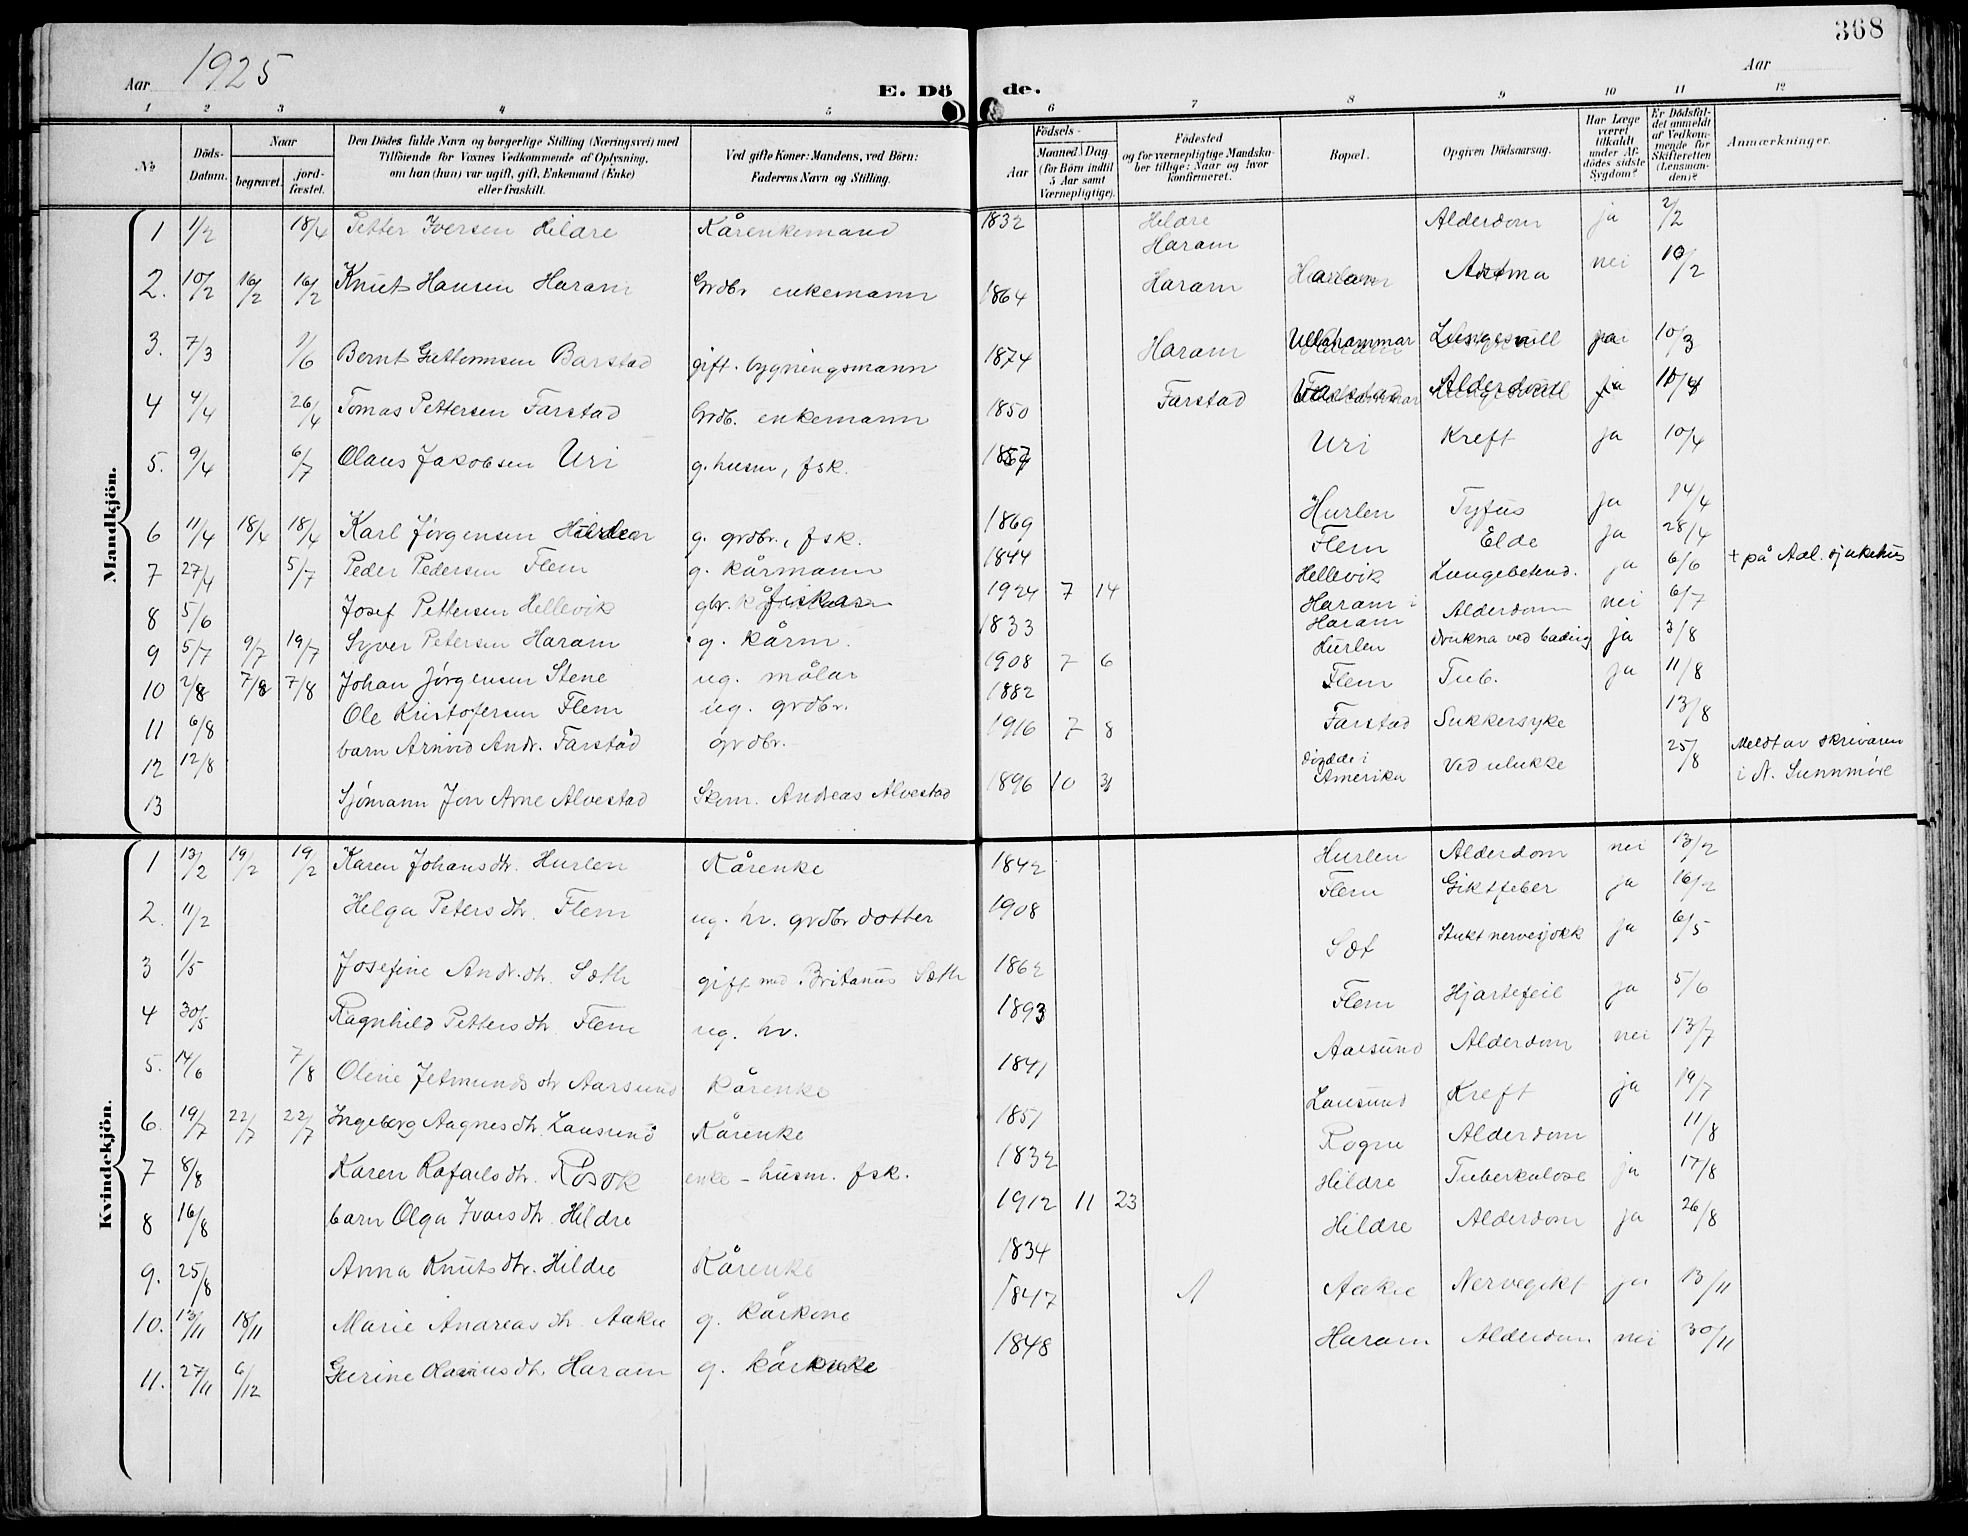 368
Aar 1925
E. Dö de.
Aar
1 2 3 4 5 6 7 8 9 10 11 12
No
Döds-Datum.
Naar
begravet.
jord-fæstet.
Den Dödes fulde Navn og borgerlige Stilling (Næringsvei) med
Tilföiende for Voxnes Vedkommende af Oplysning,
om han (hun) var ugift, gift, Enkemand (Enke)
eller fraskilt.
Ved gifte Koner: Mandens, ved Börn:
Faderens Navn og Stilling.
Födsels-
Aar
Maaned Dag
(for Börn indtil
5 Aar samt
Værnepligtige).
Födested
og for værnepligtige Mandska-
ber tillige: Naar og hvor
konfirmeret.
Bopæl.
Opgiven Dödsaarsag.
Har Læge
været
tilkaldt
under Af-
dödes sidste
Sygdom?
Er Dödsfal-
det anmeldt
af Vedkom-
mende for
Skifteretten
(Lensman-
den)?
Anmærkninger.
Mandkjön.
1 1/2 18/4 Petter Iversen Hildre Kårenkemand 1832 Hildre Haram Alderdom ja 2/2
2. 10/2 16/2 16/2 Knut Hansen Haram Grdbr enkemann 1864 Haram Haram Astma nei 10/2
3. 7/3 1/6 Bernt Guttormsen Barstad gift. bygningsmann 1874 Haram Ullahammar ja 10/3
4 4/4 26/4 Tomas Pettersen Farstad Grdb. enkemann 1850 Farstad Farstad Alderdom ja 10/4
5. 9/4 6/7 Olaus Jakobsen Uri g. husm, fsk. Uri Kreft ja 10/4
6 11/4 18/4 18/4 Karl Jørgensen Hurlen g. grdbr, fsk. 1869 Hurlen Tyfus ja 14/4
7 27/4 5/7 Peder Pedersen Flem g. kårmann 1844 Flem Elde ja 28/4
8 5/6 Josef Pettersen Hellevik gbr. fiskar 1924 7 14 Hellevik Lungebetend. ja 6/6 + på Aal. sjukehus
9 5/7 9/7 19/7 Syver Petersen Haram g. kårm. 1833 Haram i Haram Alderdom nei 6/7
10 2/8 7/8 7/8 Johan Jørgensen Stene ug. målar 1908 7 6 Hurlen Drukna ved bading ja 3/8
11 6/8 Ole Kristofersen Flem ug. grdbr. 1882 Flem Tub. ja 11/8
12 12/8 barn Arnvid Andr. Farstad grdbr. 1916 7 8 Farstad Sukkersyke 13/8
13 Sjömann Jon Arne Alvestad Skom. Andreas Alvestad 1896 10 i Amerika Ved ulukke 25/8 Meldt av skrivaren
i N. Sunnmöre
Kvindekjön.
1 13/2 19/2 19/2 Karen Johansdtr. Hurlen Kårenke 1842 Hurlen Alderdom nei 13/2
2. 11/2 Helga Petersdtr. Flem ug. hv. grdbr dotter 1908 Flem Giktfeber ja 16/2
3 1/5 Josefine Andr.dtr. Sæth gift med Britanus Sæth 1862 Sæt nervesjokk ja 6/5
4 30/5 Ragnhild Pettersdtr. Flem ug. hv. 1893 Flem Hjartefeil ja 5/6
5. 14/6 7/8 Oline Jetmundsdtr Aarsund kårenke 1841 Aarsund Alderdom nei 13/7
6. 19/7 22/7 22/7 Ingeborg Aagnesdtr. Lausund Kårenke 1851 Lausund Kreft ja 19/7
7 8/8 Karen Rafaelsdtr. Røsok enke - husm. fsk. 1832 Rogne Alderdom 11/8
8 16/8 barn Olga Ivarsdtr. Hildre 1912 11 23 Hildre Tuberkulose ja 17/8
9. 25/8 Anna Knutsdtr. Hildre Kårenke 1834 Hildre Alderdom ja 26/8
10. 13/11 18/11 Marie Andreasdtr. Aakre g. kårkone 1847 Aakre Nervegikt ja 13/11
11. 27/11 6/12 Gurine Haram g. 1848 Haram Alderdom nei 30/11